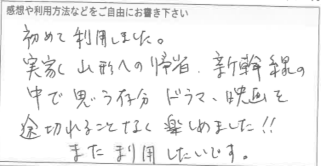 感想や利用方法などをご自由にお書き下さい
初めて利用しました。
実家山形への帰省、新幹線の
中で思う存分ドラマ、映画を
途切れることなく楽しめました!!
また利用したいです。